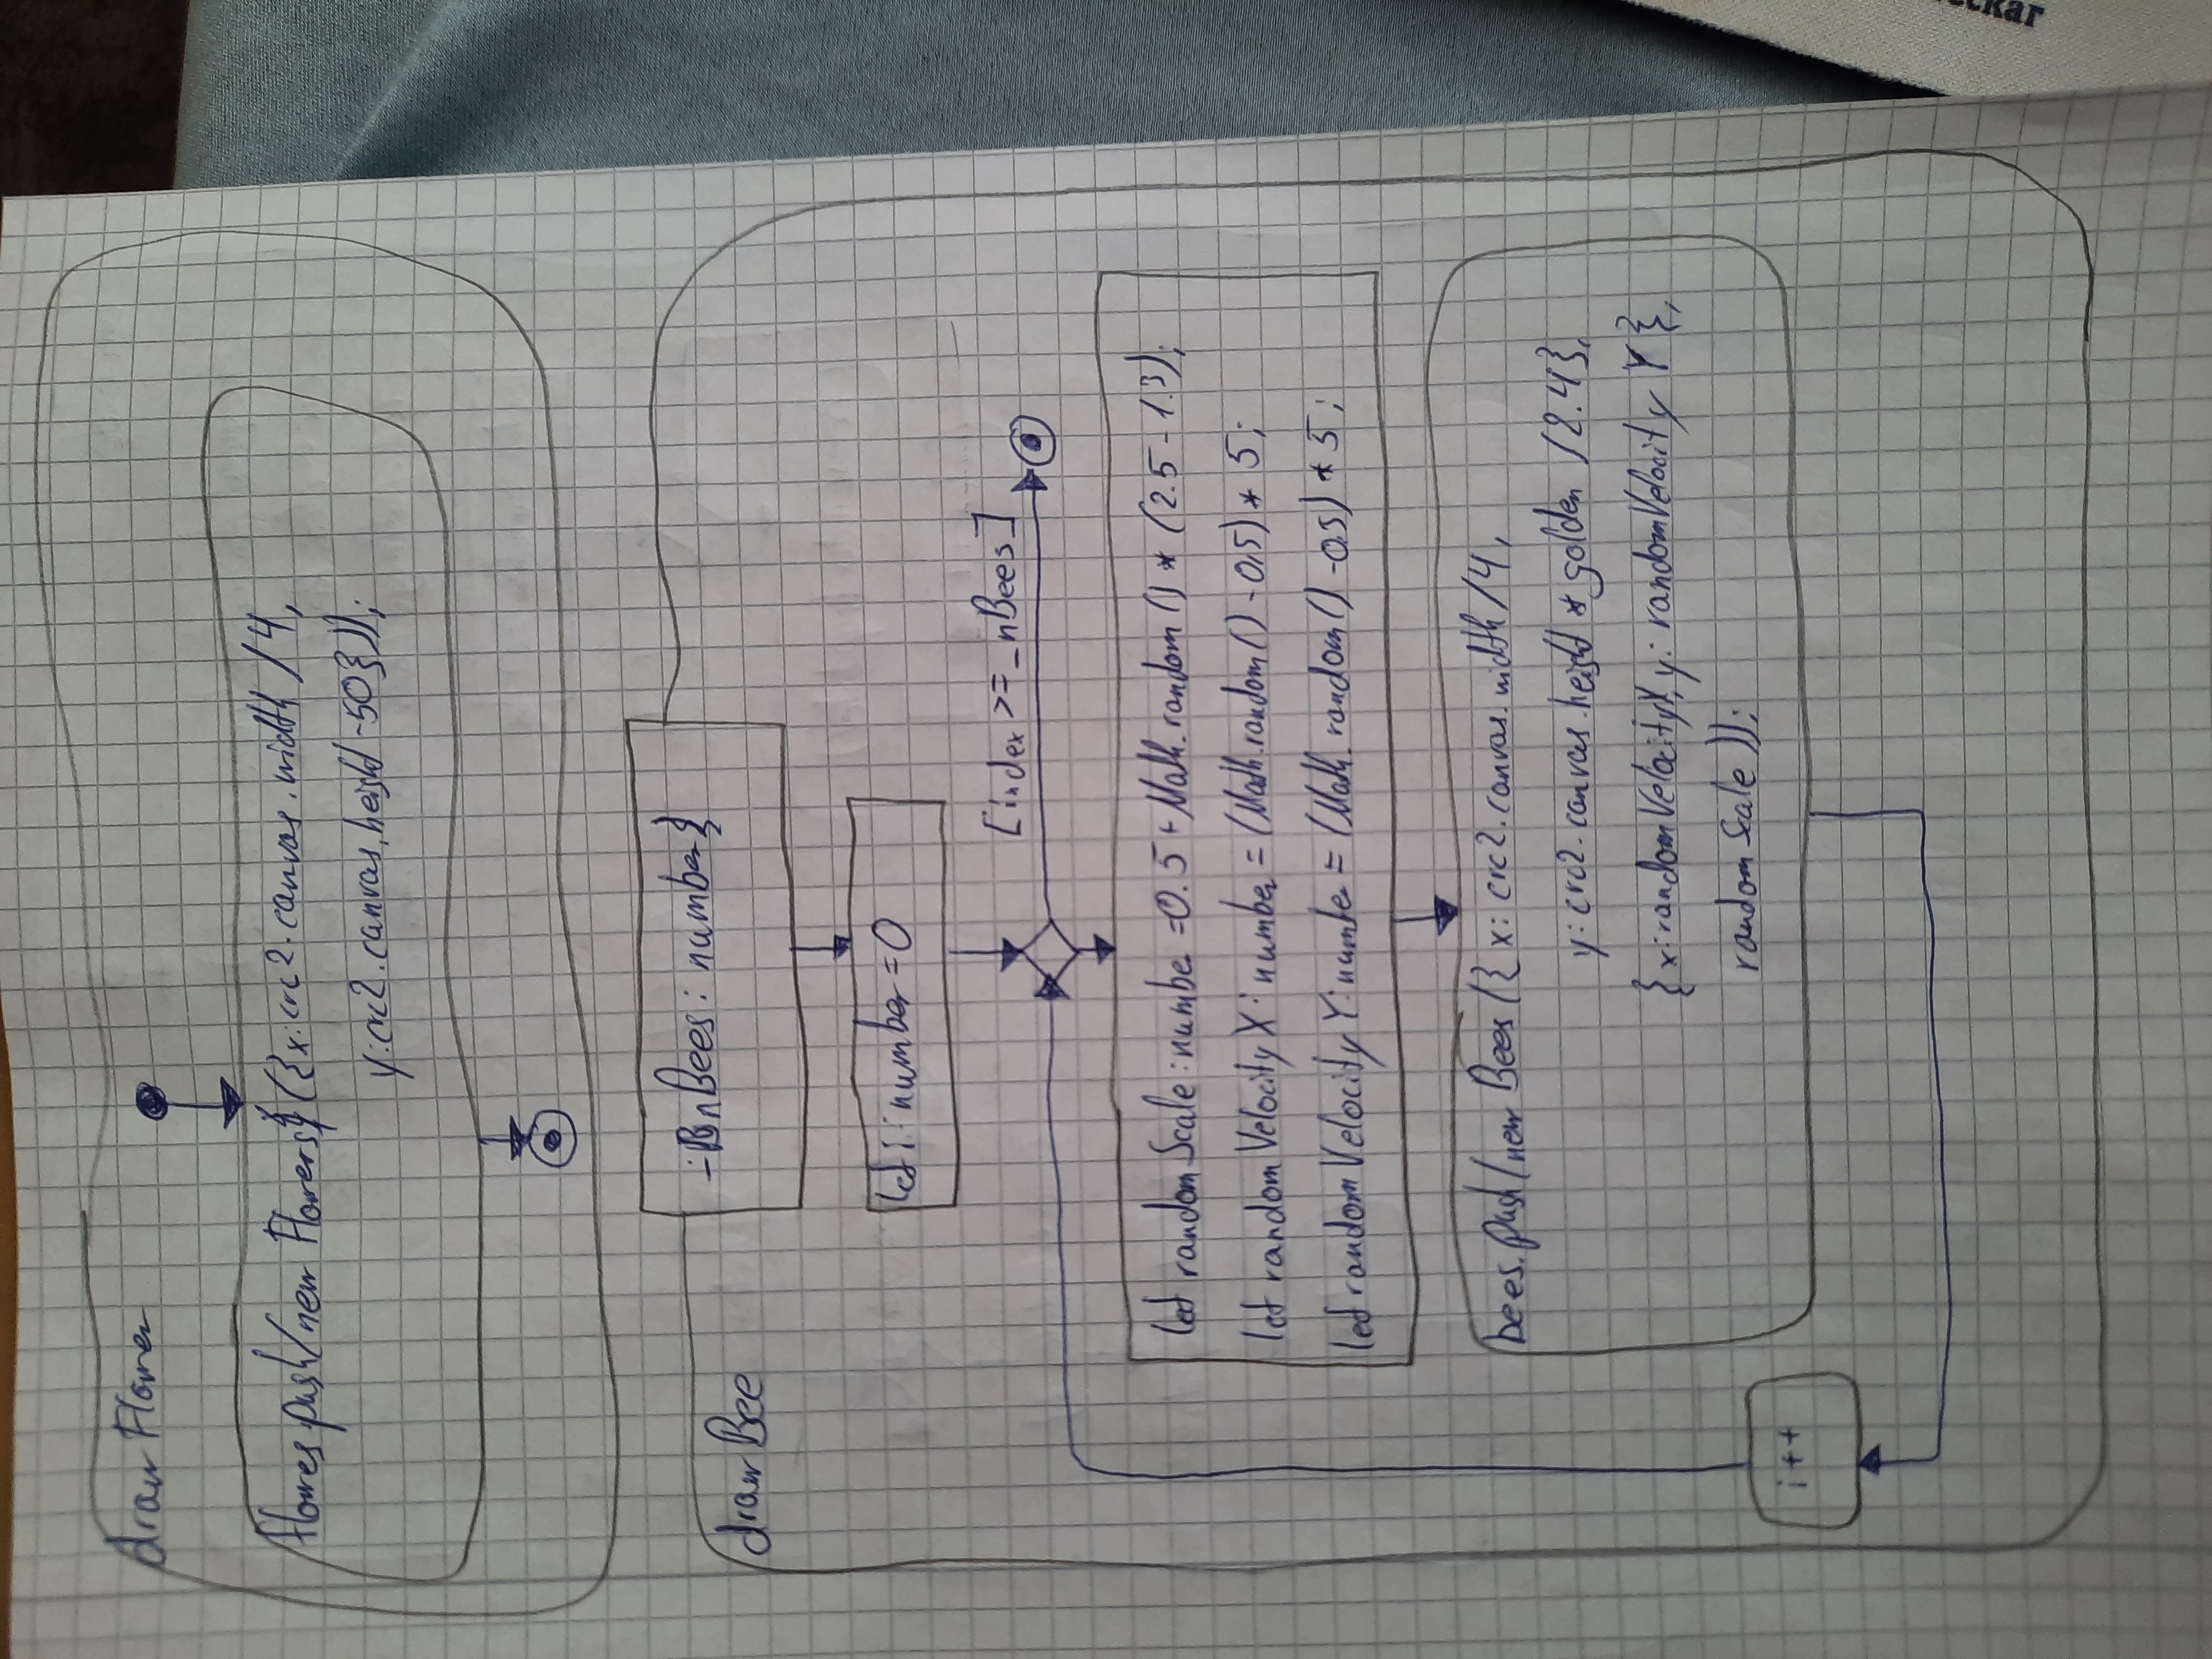 drawFlower
flowers.push(new Flowers({x:crc2.canvas.width /4,
y:crc2.canvas.height -50}));
_nBees: number}
drawBee
let i: number = 0
[index >= _nBees]
let randomScale: number = 0.5 + Math.random() * (2.5 - 1.3);
let randomVelocityX: number = (Math.random() - 0.5) * 5;
let randomVelocityY: number = (Math.random() - 0.5) * 5;
bees.push(new Bees({ x: crc2.canvas.width /4,
y: crc2.canvas.height * golden /2.4},
{x:randomVelocityX, y: randomVelocityY},
randomScale));
i++